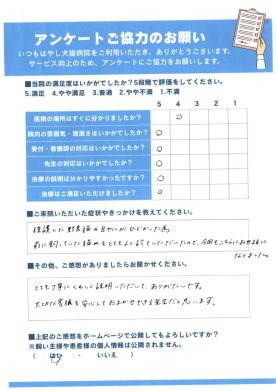 アンケートご協力のお願い
いつもはやし犬猫病院をご利用いただき、ありがとうございます。
サービス向上のため、アンケートにご協力をお願いします。
■当院の満足度はいかがでしたか?5段階で評価をしてください。
5.満足 4.やや満足 3.普通 2.やや不満 1.不満
5 4 3 2 1
医院の場所はすぐに分かりましたか? ○
院内の雰囲気・清潔さはいかがでしたか? ○
受付・看護師の対応はいかがでしたか? ○
先生の対応はいかがでしたか? ○
治療の説明は分かりやすかったですか? ○
治療はご満足いただけましたか? ○
■ご来院いただいた症状やきっかけを教えてください。
保護した野良猫の目やにがひどかった為
前に飼っていた猫もとてもよく診ていただいたので、今回もこちらにお世話に
なりました。
■その他、ご感想がありましたらお聞かせください。
とても丁寧にくわしく説明いただいて、ありがたいです。
大切な家族を安心しておまかせできる先生だと思います。
■上記のご感想をホームページで公開してもよろしいですか?
※飼い主様や患者様の個人情報は公開されません。
( はい ・ いいえ )